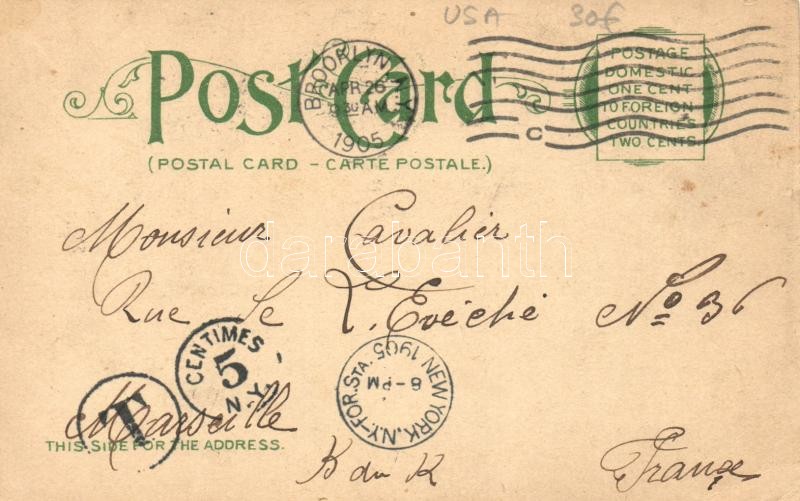 USA 30€
POST CARD
BROOKLYN, N.Y.
APR 26
9 30 AM
1905
C
POSTAGE
DOMESTIC
ONE CENT
TO FOREIGN
COUNTRIES
TWO CENTS
(POSTAL CARD – CARTE POSTALE.)
Monsieur Cavalier
darabanth
Rue de L'Evéché No 36
CENTIMES
5
N.Y.
NEW YORK, N.Y.-FOR. STA.
6-PM
1905
T
Marseille
THIS SIDE FOR THE ADDRESS.
B du R France